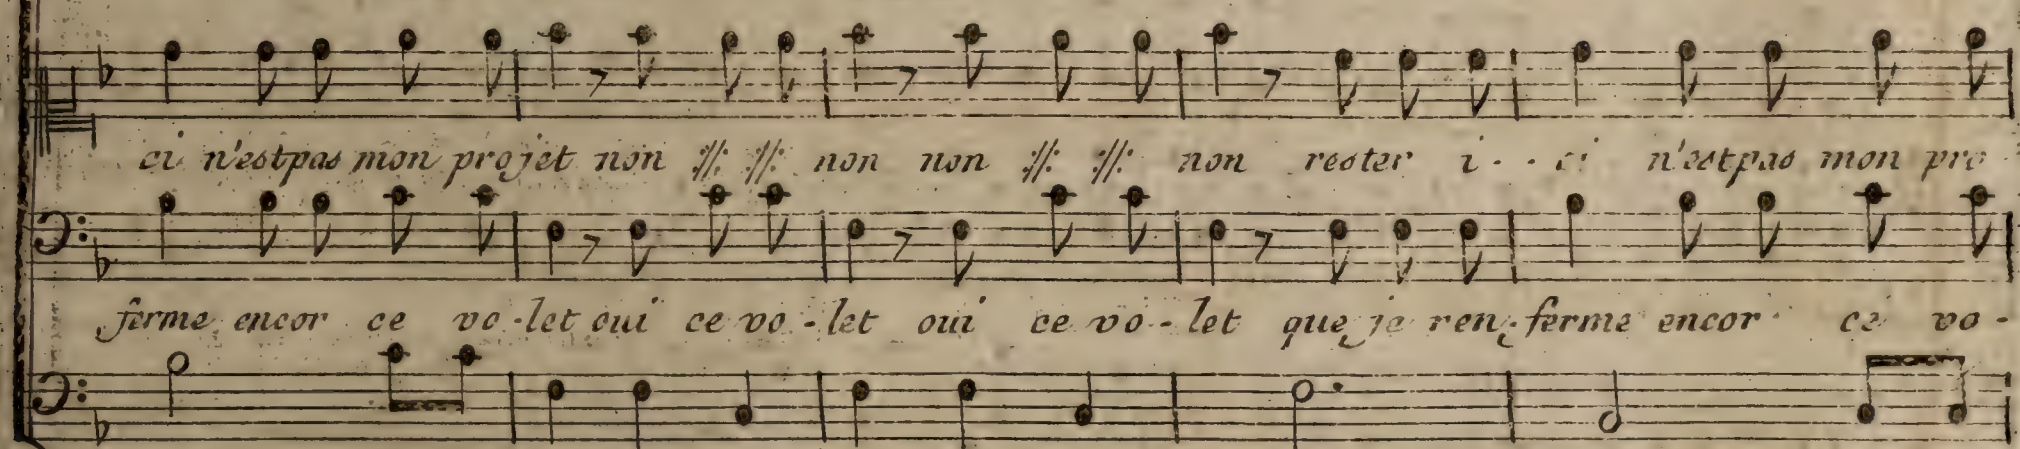 ci n'est pas mon projet non :||: :||: non non :||: :||: non rester i - ci n'est pas mon pro -
ferme encor ce vo - let oui ce vo - let oui ce vo - let que je ren - ferme encor ce vo -